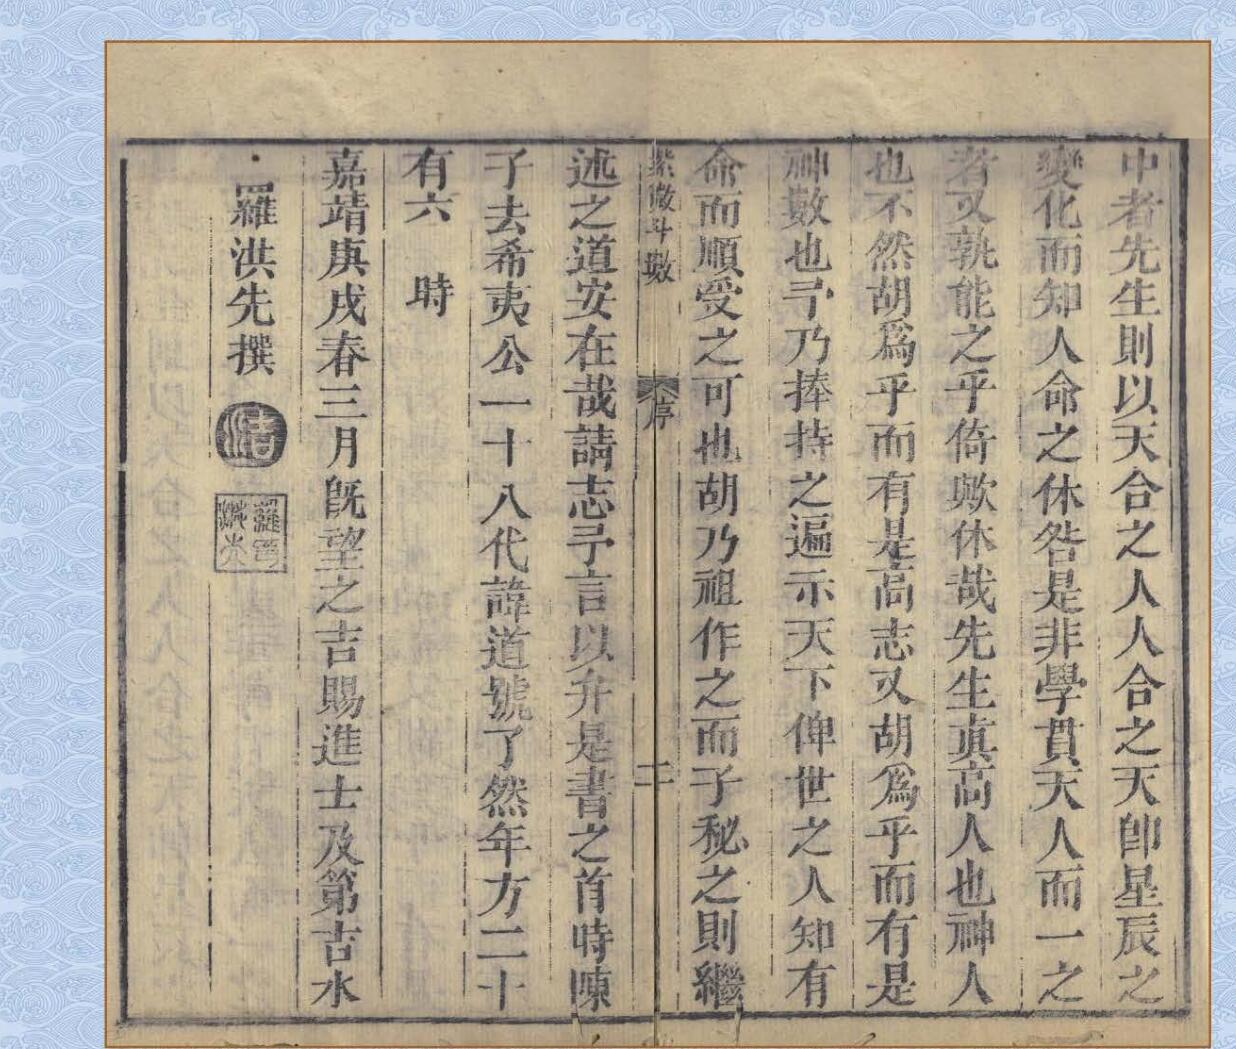 中者先生則以天合之人人合之天卽星辰之
變化而知人命之休咎是非學貫天人而一之
者又孰能之乎倚歟休哉先生眞高人也神人
也不然胡爲乎而有是高志又胡爲乎而有是
神數也予乃捧持之遍示天下俾世之人知有
命而順受之可也胡乃祖作之而子秘之則繼
紫微斗數 序 二
述之道安在哉請志予言以弁是書之首時陳
子去希夷公一十八代諱道號了然年方二十
有六 時
嘉靖庚戌春三月旣望之吉賜進士及第吉水
羅洪先撰